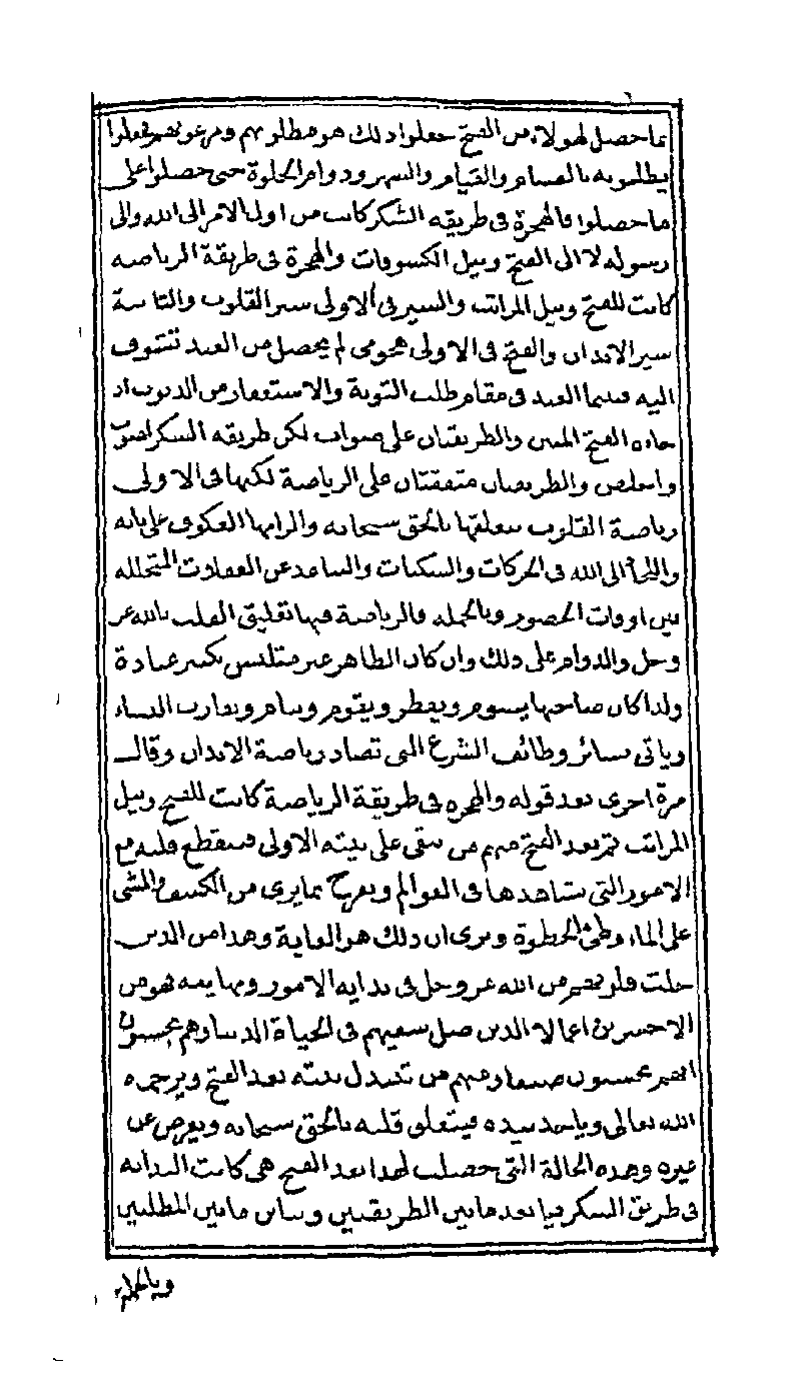 بما حصل لهولاء من الفتح جعلوا ذلك هو مطلوبهم ومرغوبهم فجعلوا
يطلبونه بالصيام والقيام والسهر ودوام الخلوة حتى حصلوا على
ما حصلوا فالهجرة في طريقه الشكر كانت من اول الامر الى الله والى
رسوله لا الى الفتح ونيل الكشوفات والهجرة في طريقة الرياضه
كانت للفتح ونيل المراتب والسير في الاولى سير القلوب والثانية
سير الابدان والفتح في الاولى هجومي لم يحصل من العبد تشوف
اليه فبينما العبد في مقام طلب التوبة والاستغفار من الذنوب اذ
جاءه الفتح المبين والطريقتان على صواب لكن طريقه الشكر اصوب
واخلص والطريقتان متفقتان على الرياضة لكنها في الاولى
رياضة القلوب بتعلقها بالحق سبحانه والزامها العكوف على بابه
واللجأ الى الله في الحركات والسكنات والتباعد عن الغفلات المتخلله
بين اوقات الحضور وبالجمله فالرياضة فيها تعليق القلب بالله عز
وجل والدوام على ذلك وان كان الظاهر غير متلبس بكبير عبادة
ولذا كان صاحبها يصوم ويفطر ويقوم وينام ويقارب النساء
وياتي بسائر وظائف الشرع التي تضاد رياضة الابدان وقال
مرة اخرى بعد قوله والهجره في طريقة الرياضة كانت للفتح ونيل
المراتب ثم بعد الفتح منهم من يبقى على نيته الاولى فينقطع قلبه مع
الامور التي يشاهدها في العوالم ويفرح بما يرى من الكشف والمشي
على الماء وطي الخطوة ويرى ان ذلك هو الغاية وهذا من الذين
خلت قلوبهم من الله عز وجل في بدايه الامور ونهايته فهو من
الاخسرين اعمالا الذين ضل سعيهم في الحياة الدنيا وهم يحسبون
انهم يحسنون صنعا ومنهم من تتبدل نيته بعد الفتح ويرحمه
الله تعالى وياخذ بيده فيتعلق قلبه بالحق سبحانه ويعرض عن
غيره وهذه الحالة التي حصلت لهذا بعد الفتح هي كانت البدايه
في طريق الشكر فيا بعد ما بين الطريقين وتباين ما بين المطلبين
وبالجملة